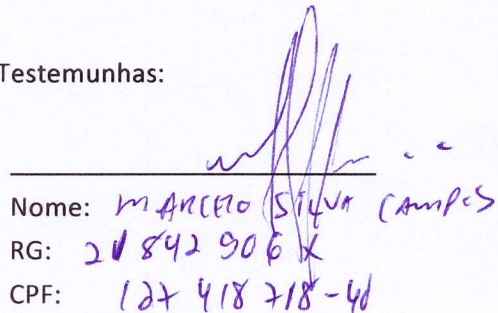 Testemunhas:
Nome: MARCELO SILVA CAMPOS
RG: 21 842 906 X
CPF: 127 418 718-40